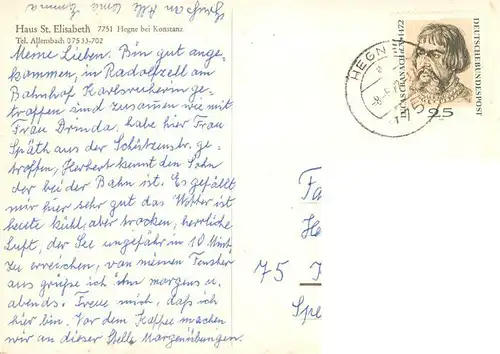 Haus St. Elisabeth 7751 Hegne bei Konstanz
Tel. Allensbach 07533-702
Meine Lieben. Bin gut ange-
kommen, in Radolfzell am
Bahnhof Karlsruherin ge-
troffen sind zusammen wie mit
Frau Drinda. habe hier Frau
Späth aus der Schützenstr. ge-
troffen, Herbert kennt den Sohn
der bei der Bahn ist. Es gefällt
mir hier sehr gut das Wetter ist
heute kühl, aber trocken, herrliche
Luft, der See ungefähr in 10 Minut.
zu erreichen, von meinem Fenster
aus grüße ich ihn morgens u.
abends. Freue mich, daß ich
hier bin. Vor dem Kaffee machen
wir an dieser Stelle Morgenübungen.
Gruß an Alle
Emma
HEGNE
LUCAS CRANACH 1472
DEUTSCHE BUNDESPOST
25
75